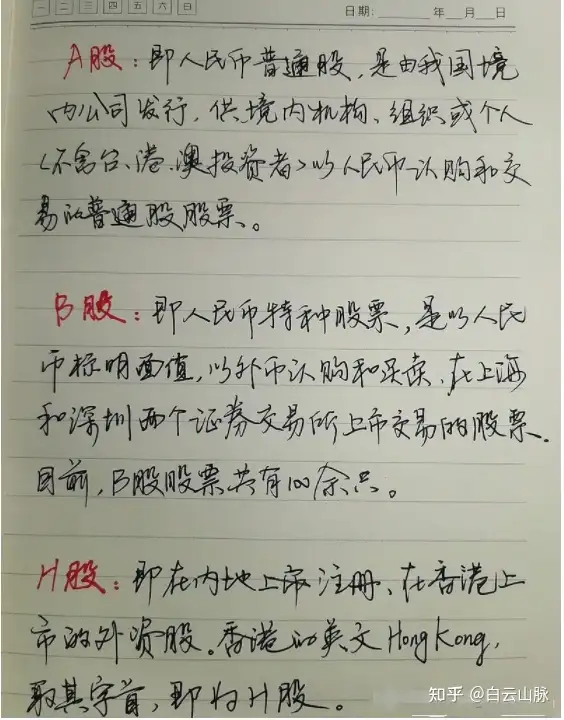 一 二 三 四 五 六 日 日期: 年 月 日
A股:即人民币普通股,是由我国境
内公司发行,供境内机构、组织或个人
(不含台、港、澳投资者)以人民币认购和交
易的普通股股票。
B股:即人民币特种股票,是以人民
币标明面值,以外币认购和买卖,在上海
和深圳两个证券交易所上市交易的股票.
目前,B股股票共有100余只。
H股:即在内地上市注册、在香港上
市的外资股。香港的英文HongKong,
取其字首,即为H股。
知乎 @白云山脉